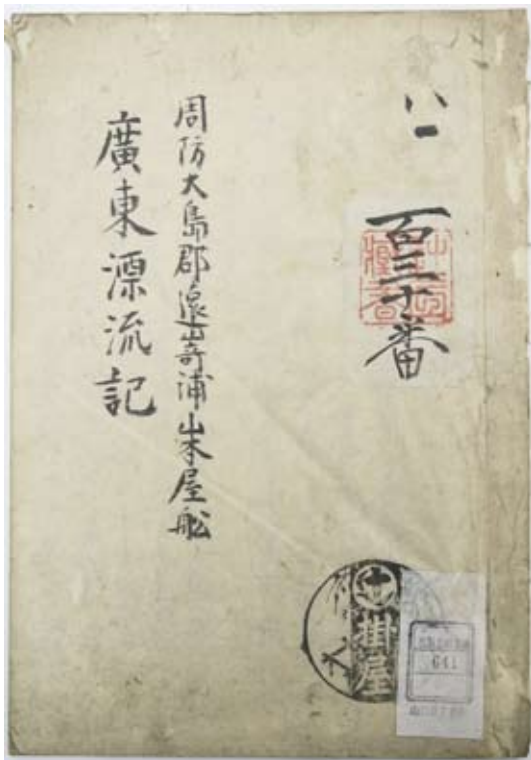 八一
百三十番
周防大島郡遠崎浦山本屋舩
廣東漂流記
掛屋
641